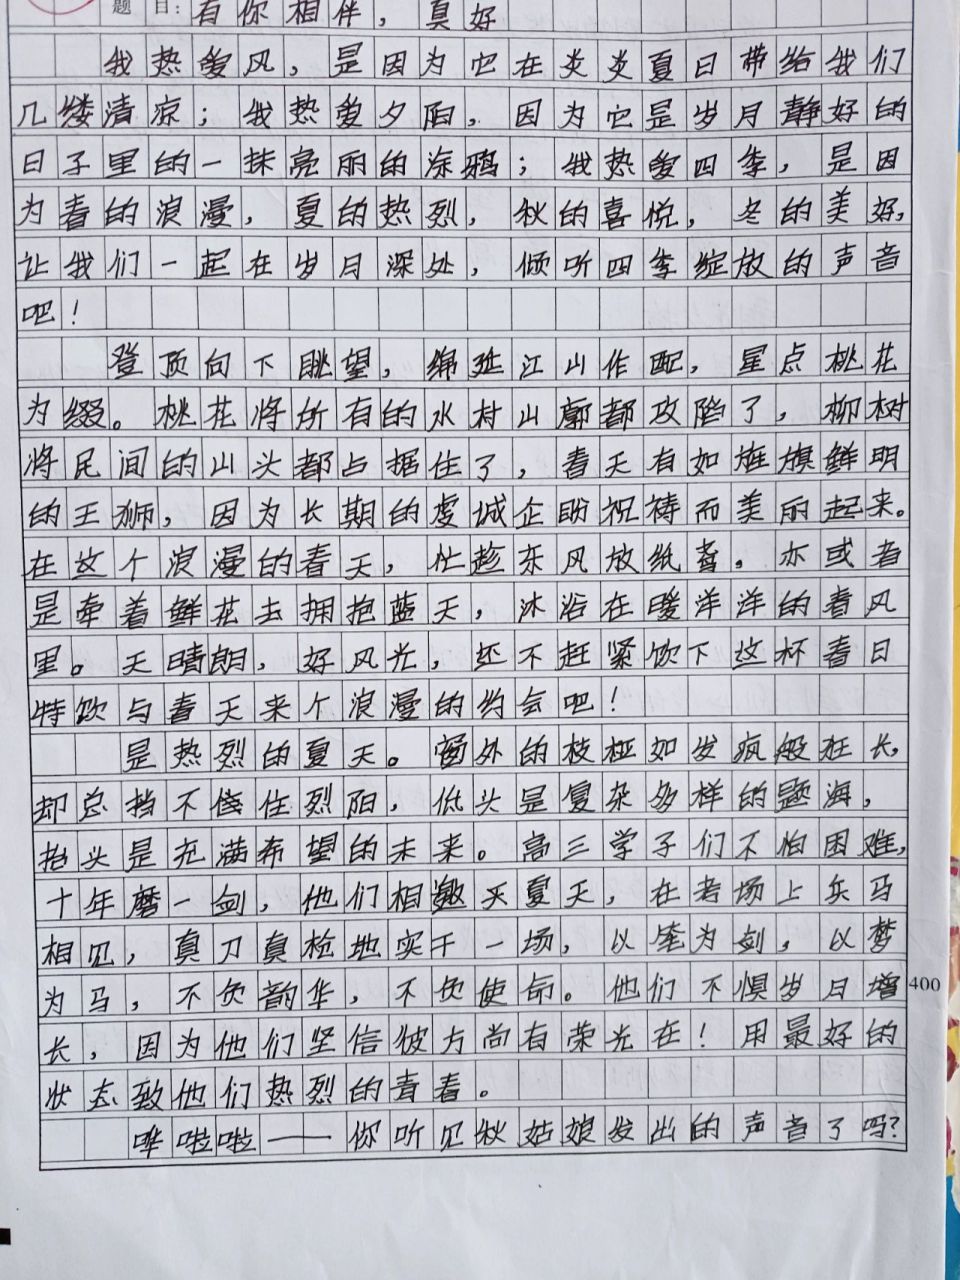 题 目：有你相伴，真好
我热爱风，是因为它在炎炎夏日带给我们
几缕清凉；我热爱夕阳，因为它是岁月静好的
日子里的一抹亮丽的涂鸦；我热爱四季，是因
为春的浪漫，夏的热烈，秋的喜悦，冬的美好，
让我们一起在岁月深处，倾听四季绽放的声音
吧！
登顶向下眺望，绵延江山作配，星点桃花
为缀。桃花将所有的水村山廓都攻陷了，柳树
将民间的山头都占据住了，春天有如旌旗鲜明
的王狮，因为长期的虔诚企盼祝祷而美丽起来。
在这个浪漫的春天，忙趁东风放纸鸢。亦或者
是牵着鲜花去拥抱蓝天，沐浴在暖洋洋的春风
里。天晴朗，好风光，还不赶紧饮下这杯春日
特饮与春天来个浪漫的约会吧！
是热烈的夏天。窗外的枝桠如发疯般狂长，
却总挡不住烈阳，低头是复杂多样的题海，
抬头是充满希望的未来。高三学子们不怕困难，
十年磨一剑，他们相邀夏天，在考场上兵马
相见，真刀真枪地实干一场，以笔为剑，以梦
为马，不负韵华，不负使命。他们不惧岁月增
400
长，因为他们坚信彼方尚有荣光在！用最好的
状态致他们热烈的青春。
哗啦啦——你听见秋姑娘发出的声音了吗？